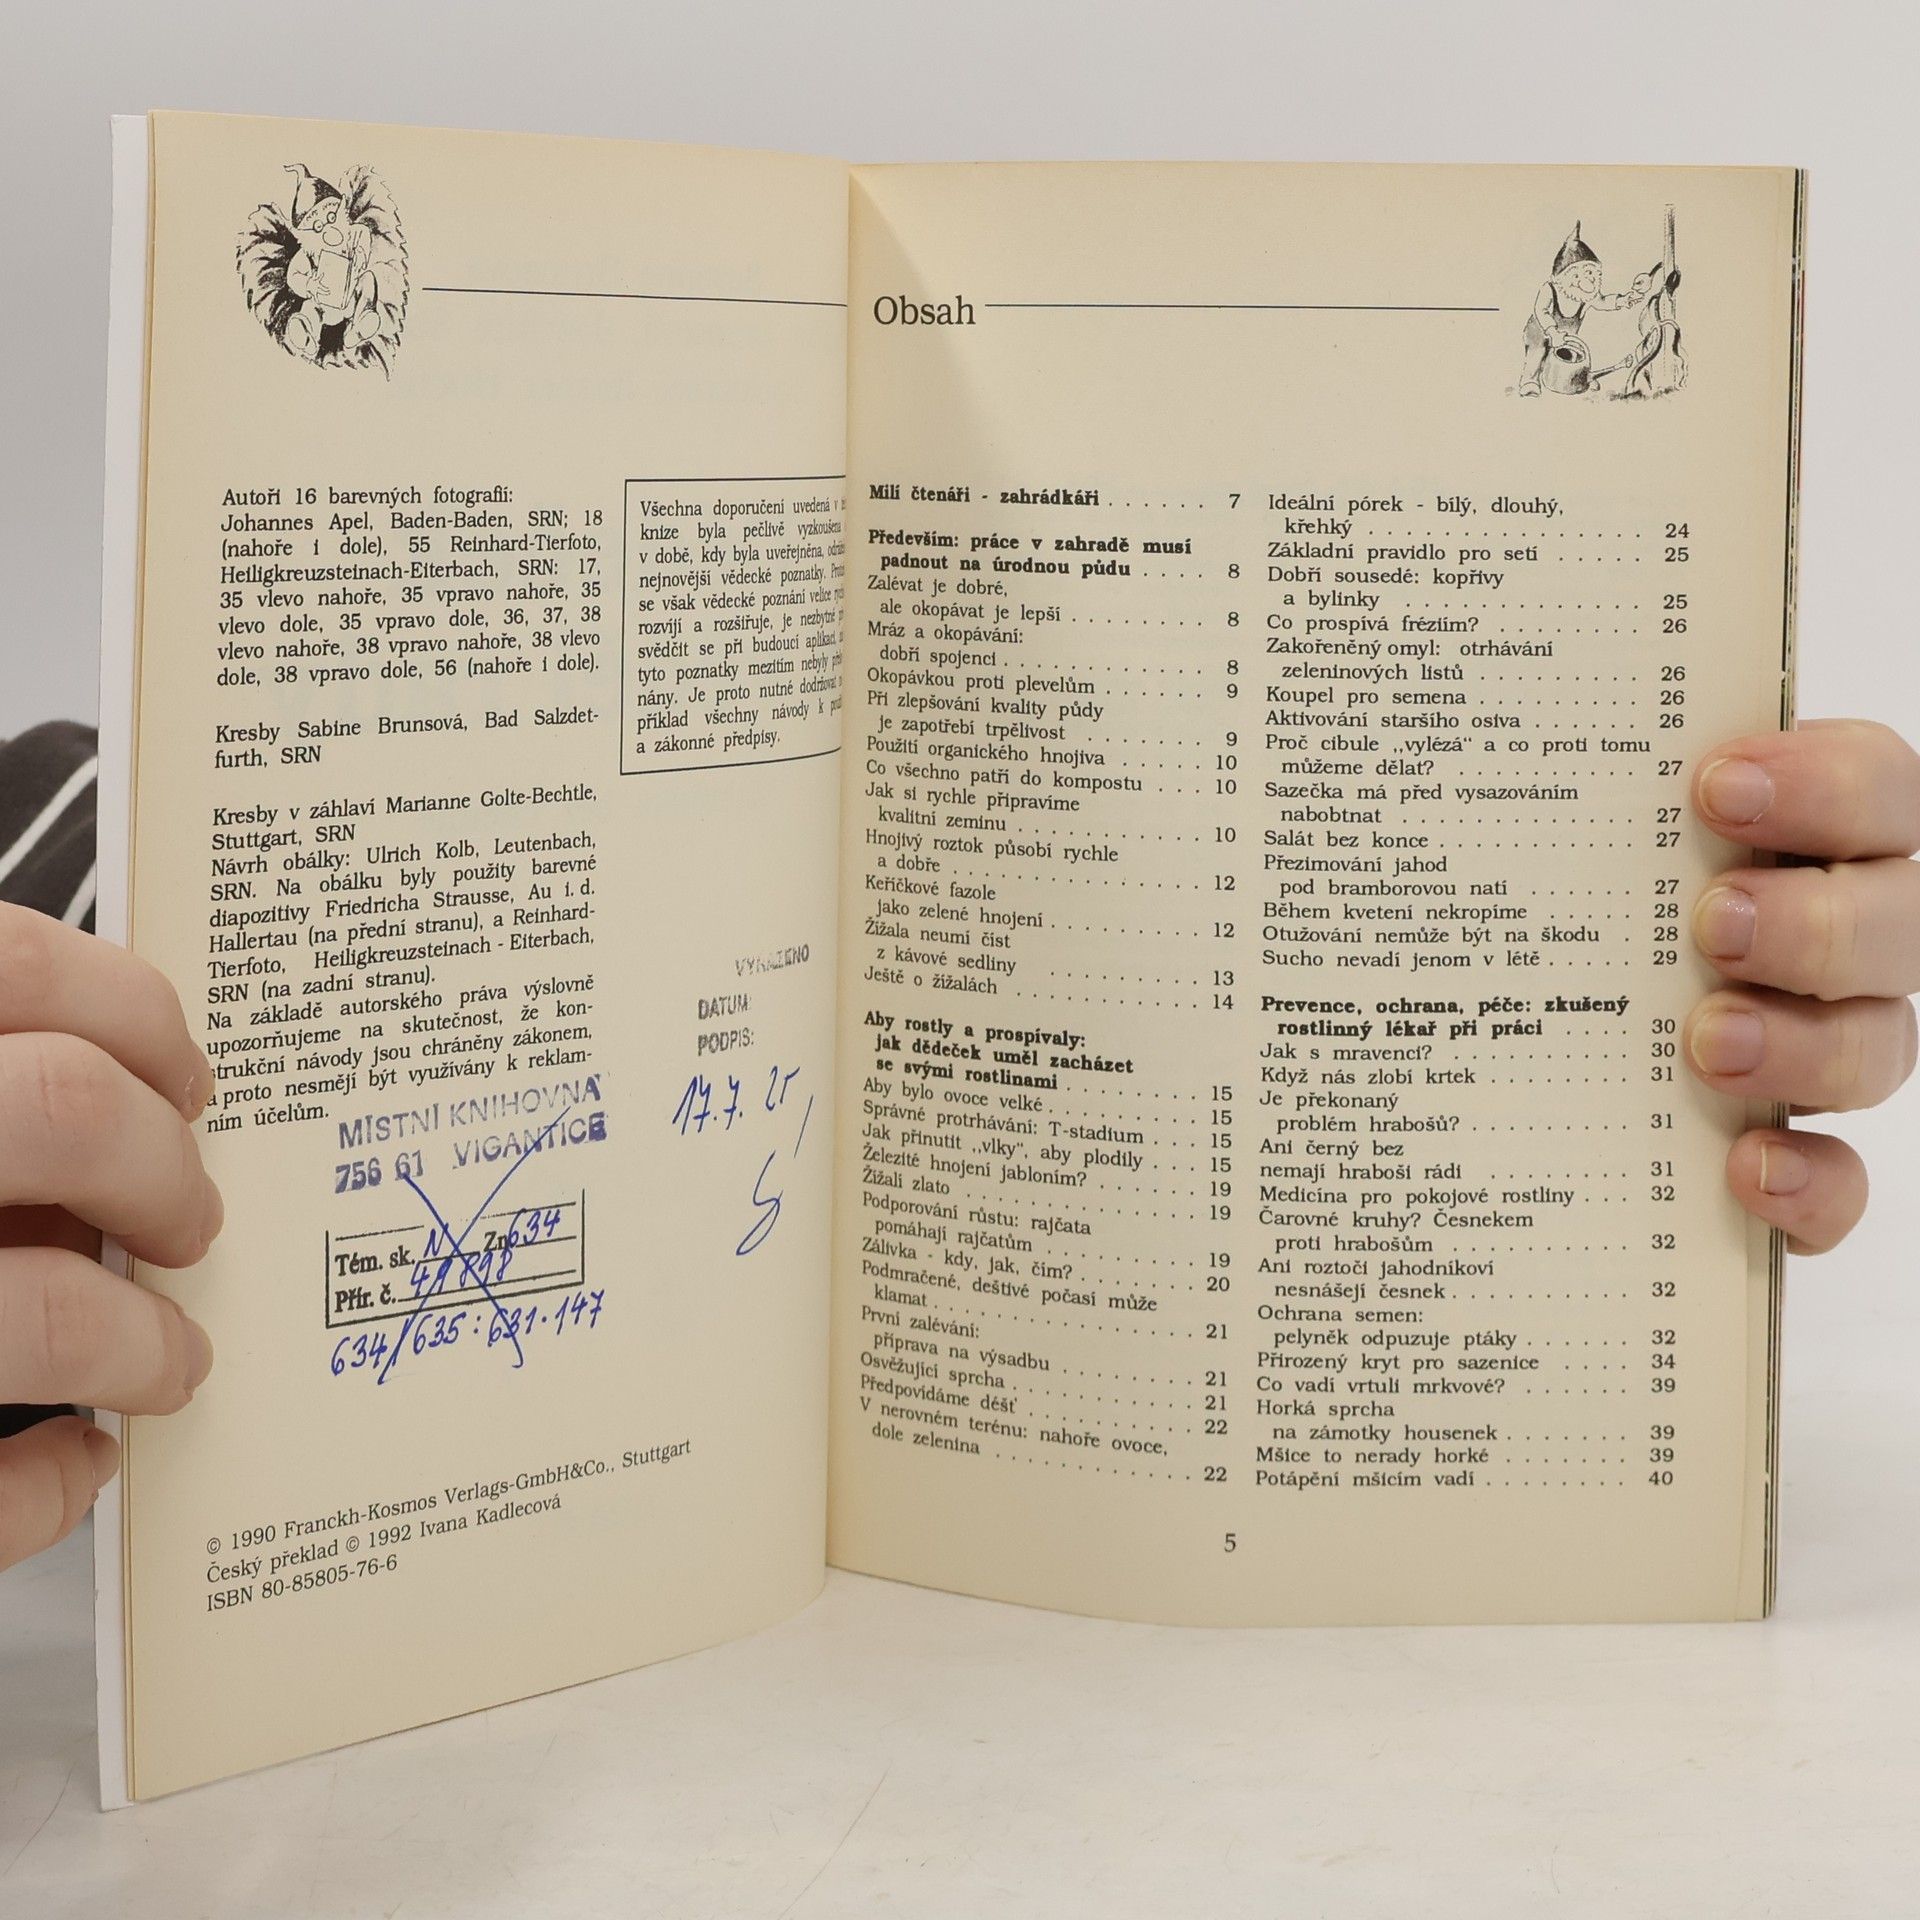 Autoři 16 barevných fotografií:
Johannes Apel, Baden-Baden, SRN; 18
(nahoře i dole), 55 Reinhard-Tierfoto,
Heiligkreuzsteinach-Eiterbach, SRN: 17,
35 vlevo nahoře, 35 vpravo nahoře, 35
vlevo dole, 35 vpravo dole, 36, 37, 38
vlevo nahoře, 38 vpravo nahoře, 38 vlevo
dole, 38 vpravo dole, 56 (nahoře i dole).
Kresby Sabine Brunsová, Bad Salzdet-
furth, SRN
Kresby v záhlaví Marianne Golte-Bechtle,
Stuttgart, SRN
Návrh obálky: Ulrich Kolb, Leutenbach,
SRN. Na obálku byly použity barevné
diapozitivy Friedricha Strausse, Au i. d.
Hallertau (na přední stranu), a Reinhard-
Tierfoto, Heiligkreuzsteinach - Eiterbach,
SRN (na zadní stranu).
Na základě autorského práva výslovně
upozorňujeme na skutečnost, že kon-
strukční návody jsou chráněny zákonem,
a proto nesmějí být využívány k reklam-
ním účelům.
MÍSTNÍ KNIHOVNA
756 61 VIGANTICE
Tém. sk. N Zn 634
Přír. č. 49898
634/635:631.147
© 1990 Franckh-Kosmos Verlags-GmbH&Co., Stuttgart
Český překlad © 1992 Ivana Kadlecová
ISBN 80-85805-76-6
Všechna doporučení uvedená v
knize byla pečlivě vyzkoušena
v době, kdy byla uveřejněna,
nejnovější vědecké poznatky.
se však vědecké poznání velice
rozvíjí a rozšiřuje, je nezbytné
svědčit se při budoucí aplikaci,
tyto poznatky mezitím nebyly
nány. Je proto nutné dodržovat
příklad všechny návody k
a zákonné předpisy.
VYŘAZENO
DATUM:
PODPIS:
17.7. 25
Obsah
Milí čtenáři - zahrádkáři . . . . . . 7
Především: práce v zahradě musí
padnout na úrodnou půdu . . . . 8
Zalévat je dobré,
ale okopávat je lepší . . . . . . . . 8
Mráz a okopávání:
dobří spojenci . . . . . . . . . . . . 8
Okopávkou proti plevelům . . . . . . 9
Při zlepšování kvality půdy
je zapotřebí trpělivost . . . . . . . 9
Použití organického hnojiva . . . . . 10
Co všechno patří do kompostu . . . 10
Jak si rychle připravíme
kvalitní zeminu . . . . . . . . . . . 10
Hnojivý roztok působí rychle
a dobře . . . . . . . . . . . . . . . 12
Keříčkové fazole
jako zelené hnojení . . . . . . . . . 12
Žížala neumí číst
z kávové sedliny . . . . . . . . . 13
Ještě o žížalách . . . . . . . . . . . 14
Aby rostly a prospívaly:
jak dědeček uměl zacházet
se svými rostlinami . . . . . . . . 15
Aby bylo ovoce velké . . . . . . . . . 15
Správné protrhávání: T-stadium . . . 15
Jak přinutit ,,vlky“, aby plodily . . . 15
Železité hnojení jabloním? . . . . . . 19
Žížalí zlato . . . . . . . . . . . . . 19
Podporování růstu: rajčata
pomáhají rajčatům . . . . . . . . . 19
Zálivka - kdy, jak, čím? . . . . . . . 20
Podmračené, deštivé počasí může
klamat . . . . . . . . . . . . . . . 21
První zalévání:
příprava na výsadbu . . . . . . . . 21
Osvěžující sprcha . . . . . . . . . . . 21
Předpovídáme déšť . . . . . . . . . . 22
V nerovném terénu: nahoře ovoce,
dole zelenina . . . . . . . . . . . . 22
Ideální pórek - bílý, dlouhý,
křehký . . . . . . . . . . . . . . . 24
Základní pravidlo pro setí . . . . . 25
Dobří sousedé: kopřivy
a bylinky . . . . . . . . . . . . . 25
Co prospívá fréziím? . . . . . . . . 26
Zakořeněný omyl: otrhávání
zeleninových listů . . . . . . . . . 26
Koupel pro semena . . . . . . . . . 26
Aktivování staršího osiva . . . . . . 26
Proč cibule ,,vylézá“ a co proti tomu
můžeme dělat? . . . . . . . . . . 27
Sazečka má před vysazováním
nabobtnat . . . . . . . . . . . . . 27
Salát bez konce . . . . . . . . . . . 27
Přezimování jahod
pod bramborovou natí . . . . . . 27
Během kvetení nekropíme . . . . . 28
Otužování nemůže být na škodu . 28
Sucho nevadí jenom v létě . . . . . 29
Prevence, ochrana, péče: zkušený
rostlinný lékař při práci . . . . 30
Jak s mravenci? . . . . . . . . . . 30
Když nás zlobí krtek . . . . . . . . 31
Je překonaný
problém hrabošů? . . . . . . . . . 31
Ani černý bez
nemají hraboši rádi . . . . . . . 31
Medicína pro pokojové rostliny . . . 32
Čarovné kruhy? Česnekem
proti hrabošům . . . . . . . . . . 32
Ani roztoči jahodníkoví
nesnášejí česnek . . . . . . . . . . 32
Ochrana semen:
pelyněk odpuzuje ptáky . . . . . . 32
Přirozený kryt pro sazenice . . . . 34
Co vadí vrtuli mrkvové? . . . . . . 39
Horká sprcha
na zámotky housenek . . . . . . . 39
Mšice to nerady horké . . . . . . . 39
Potápění mšicím vadí . . . . . . . . 40
5